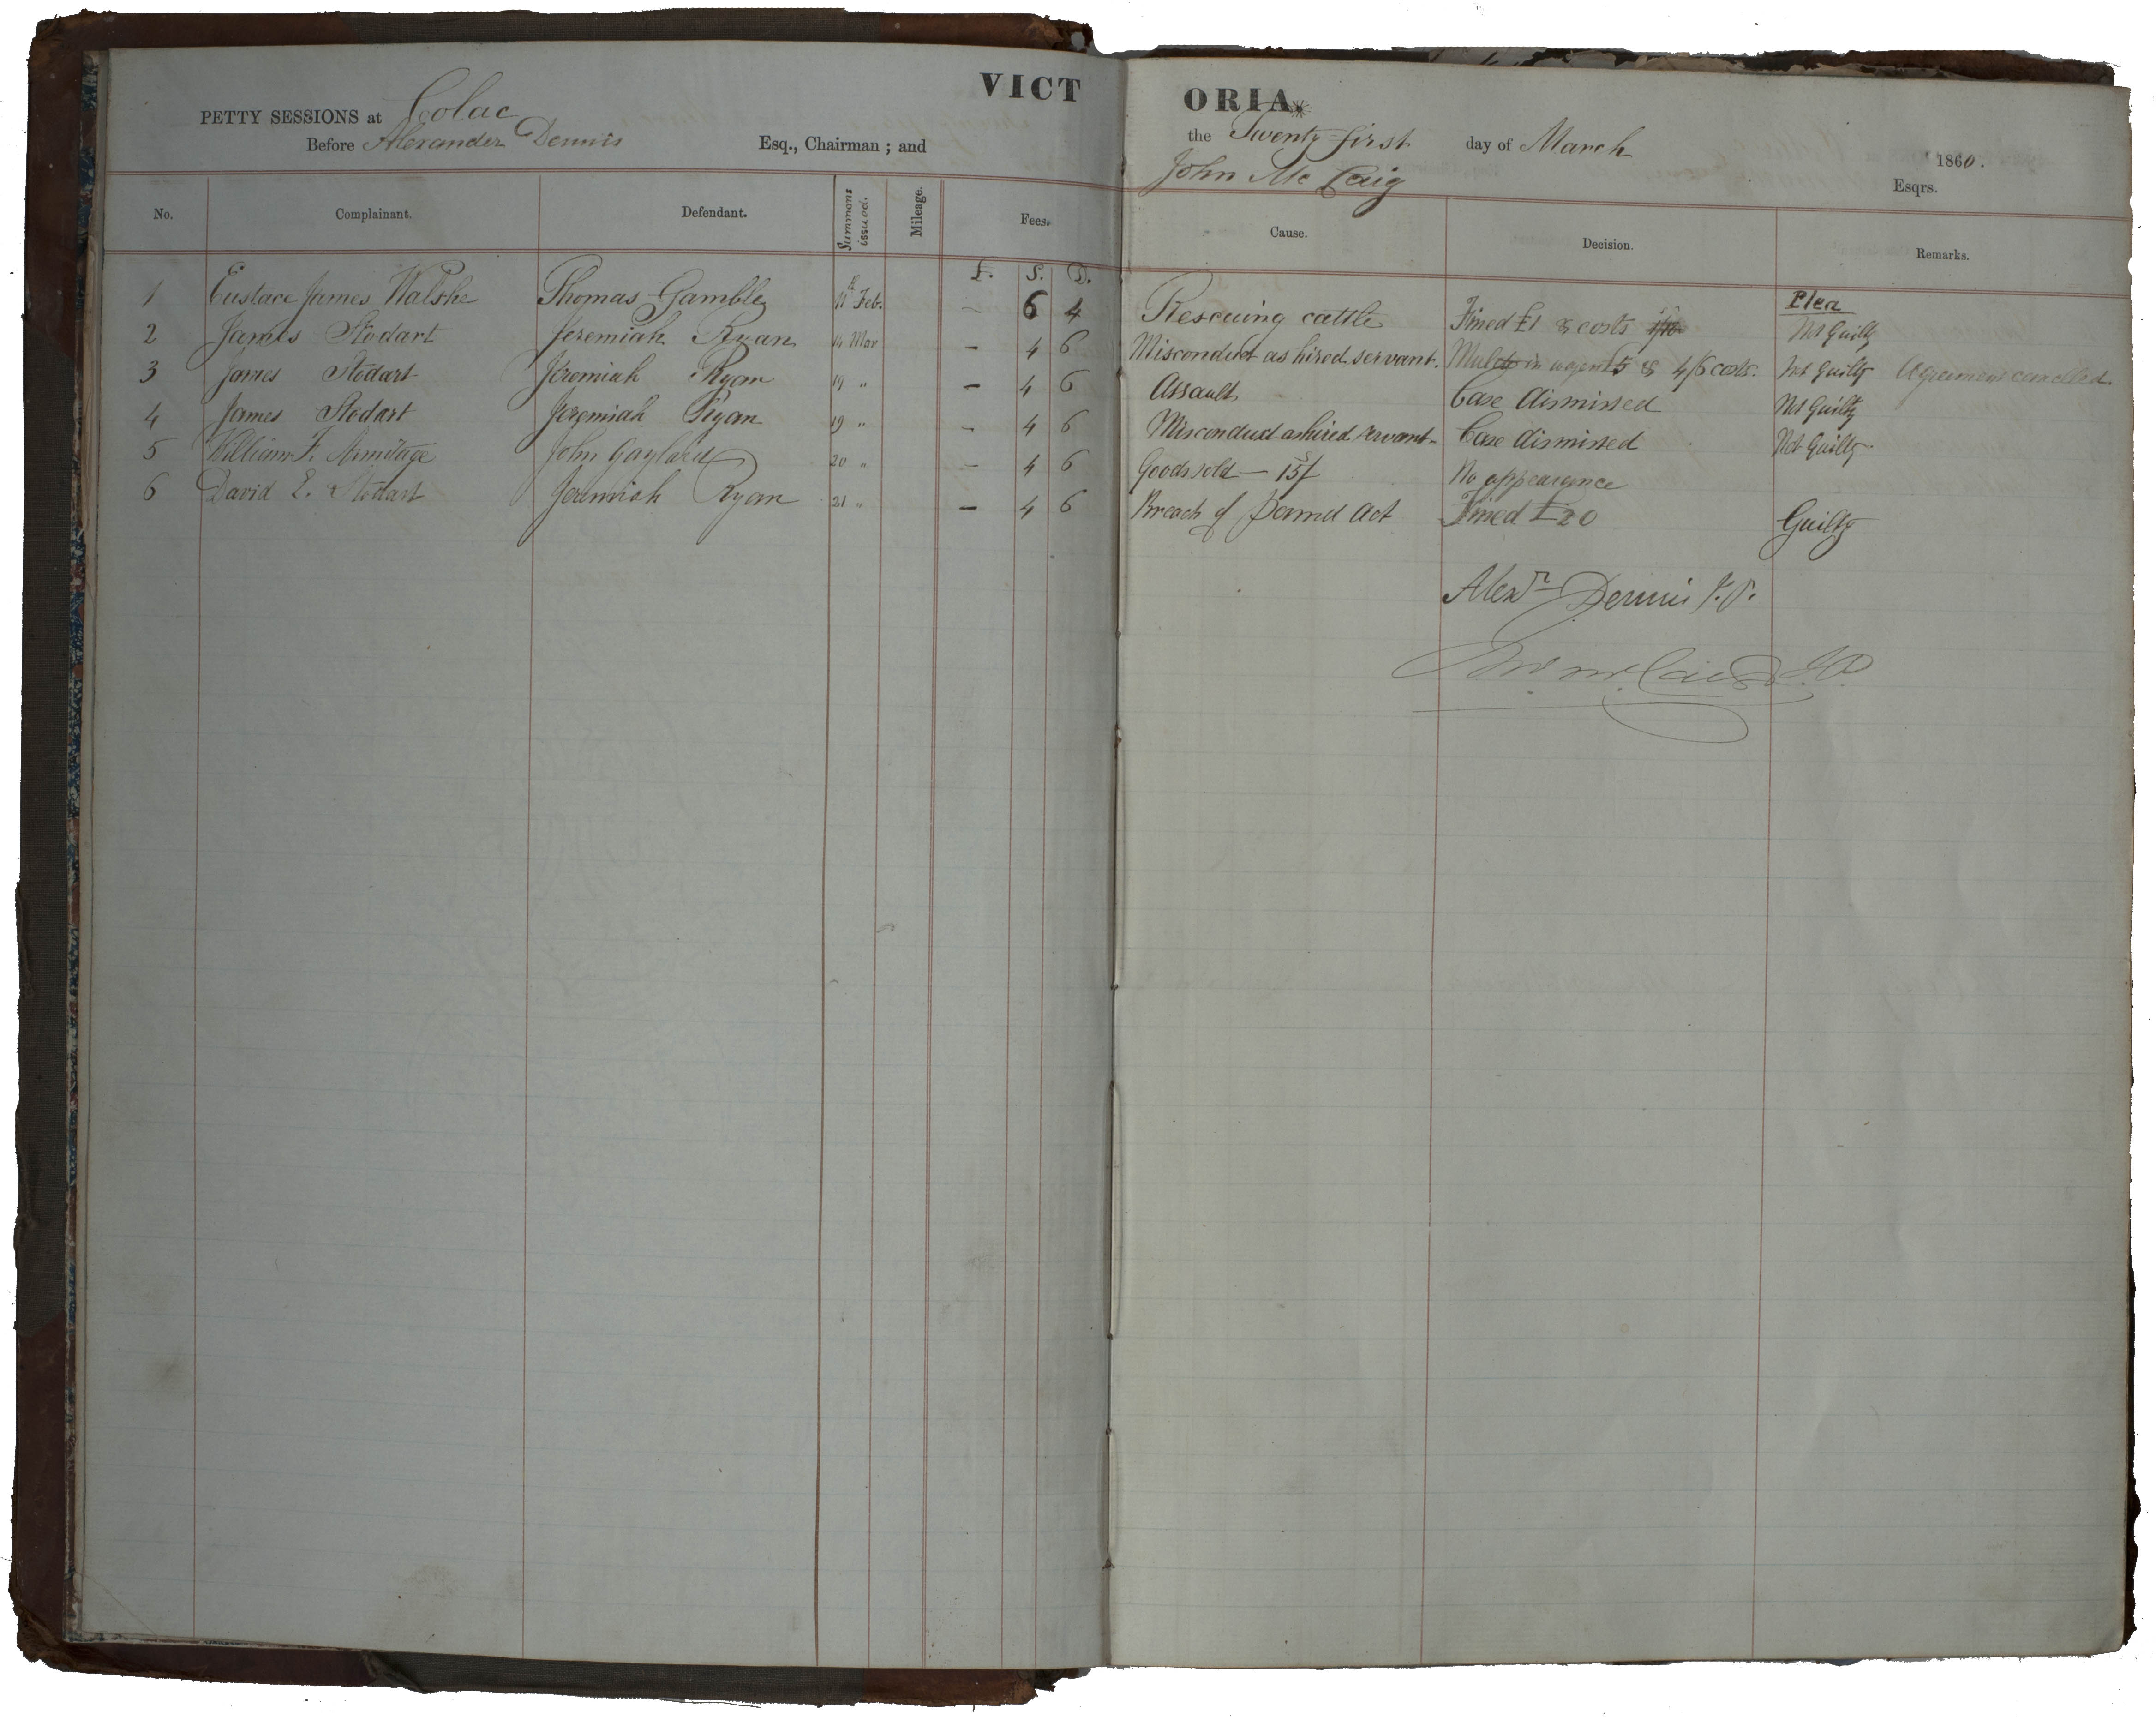 VICTORIA.
PETTY SESSIONS at Colac the Twenty first day of March 1860.
Before Alexander Dennis Esq., Chairman ; and John Mc Caig Esqrs.
No. Complainant. Defendant. Summons issued. Mileage. Fees. Cause. Decision. Remarks.
£. S. D. Plea
1 Eustace James Walshe Thomas Gamble Feb. - 6 4 Rescuing cattle Fined £1 & costs Not Guilty
2 James Stodart Jeremiah Ryan 14 Mar - 4 6 Misconduct as hired servant. Mulct in wages £5 & 4/6 costs. Not Guilty Agreement cancelled
3 James Stodart Jeremiah Ryan 19 " - 4 6 Assault Case dismissed Not Guilty
4 James Stodart Jeremiah Ryan 19 " - 4 6 Misconduct as hired servant - Case dismissed Not Guilty
5 William F. Armitage John Gaylard 20 " - 4 6 Goods sold - 15/ No appearance
6 David E. Stodart Jeremiah Ryan 21 " - 4 6 Breach of Act Fined £20 Guilty
Alexr Dennis J.P.
Jno McCaig J.P.